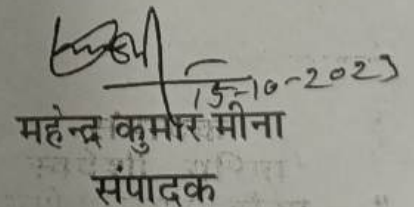 15-10-2023
महेन्द्र कुमार मीना
संपादक